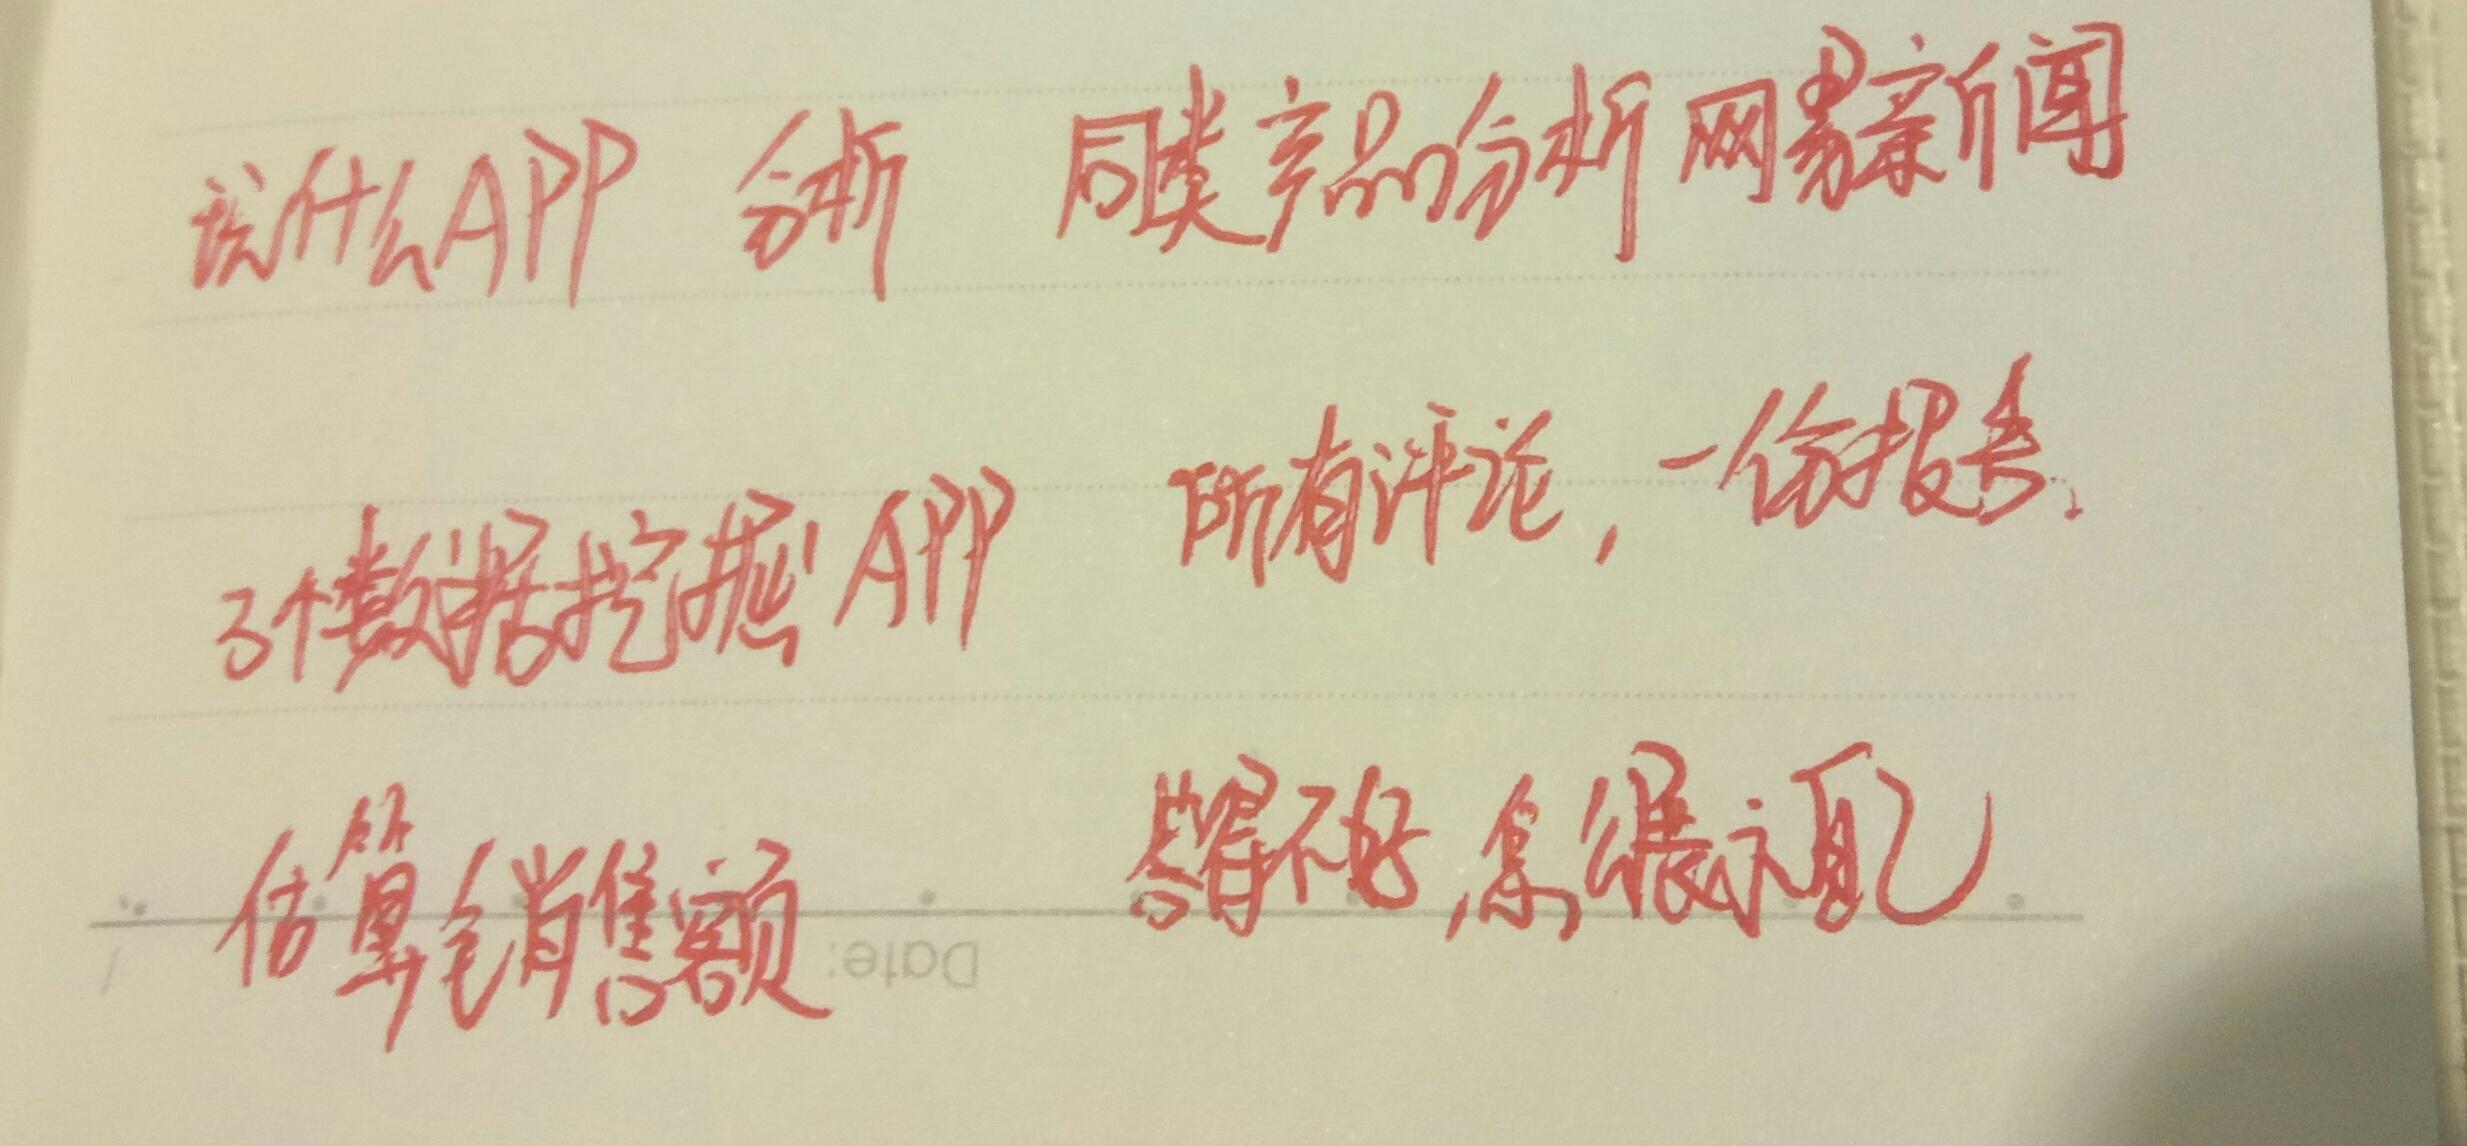 说什么APP 分析 同类产品分析网易新闻
3个数据挖掘APP 所有评论,一份报告.
估算销售额 答得不好,像很
Date: